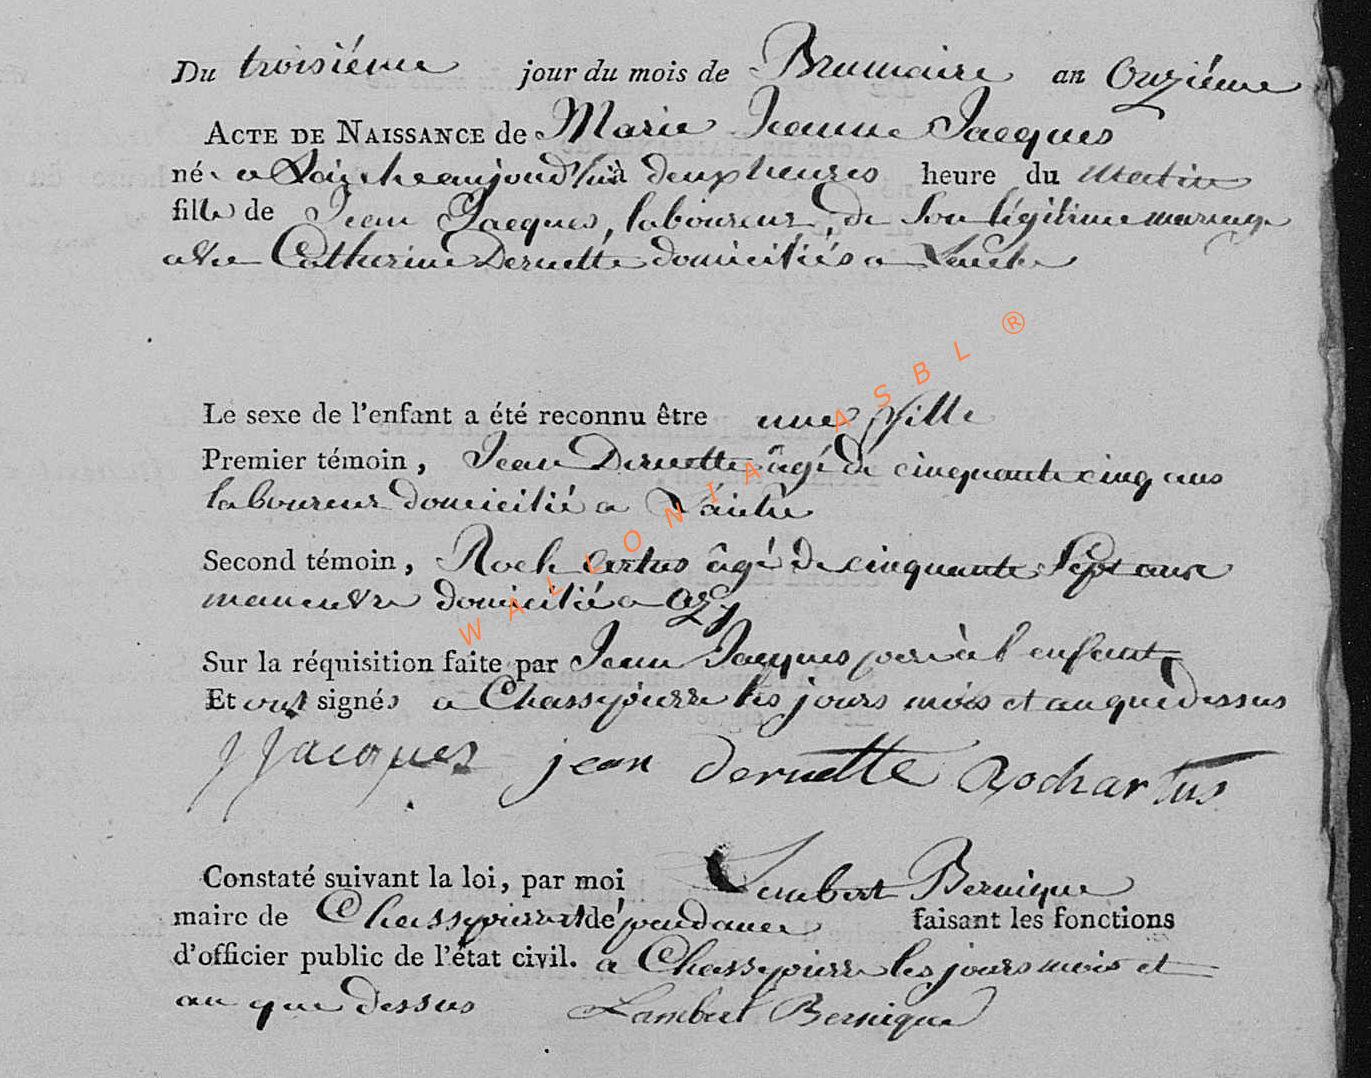 Du troisiéme jour du mois de Brumaire an Onziéme
ACTE DE NAISSANCE de Marie Jeanne Jacques
né a Laiche aujourd'hui à deux heures heure du Matin
fille de Jean Jacques, laboureur, de son légitime mariage
avec Catherine Dernette domiciliés a Laiche
Le sexe de l'enfant a été reconnu être une fille
Premier témoin, Jean Dernette âgé de cinquante cinq ans
laboureur domicilié a Laiche
Second témoin, Roch artus âgé de cinquante Sept ans
maneuvre domicilié a azy
Sur la réquisition faite par Jean Jacques pere à l'enfant
Et ont signés a Chassepierre les jours mois et an que dessus
J Jacques jean dernette Rochartus
Constaté suivant la loi, par moi Lambert Bernique
maire de Chassepierre et dépendance faisant les fonctions
d'officier public de l'état civil. a Chassepierre les jours mois et
an que dessus Lambert Bernique
WALLONIA ASBL ®